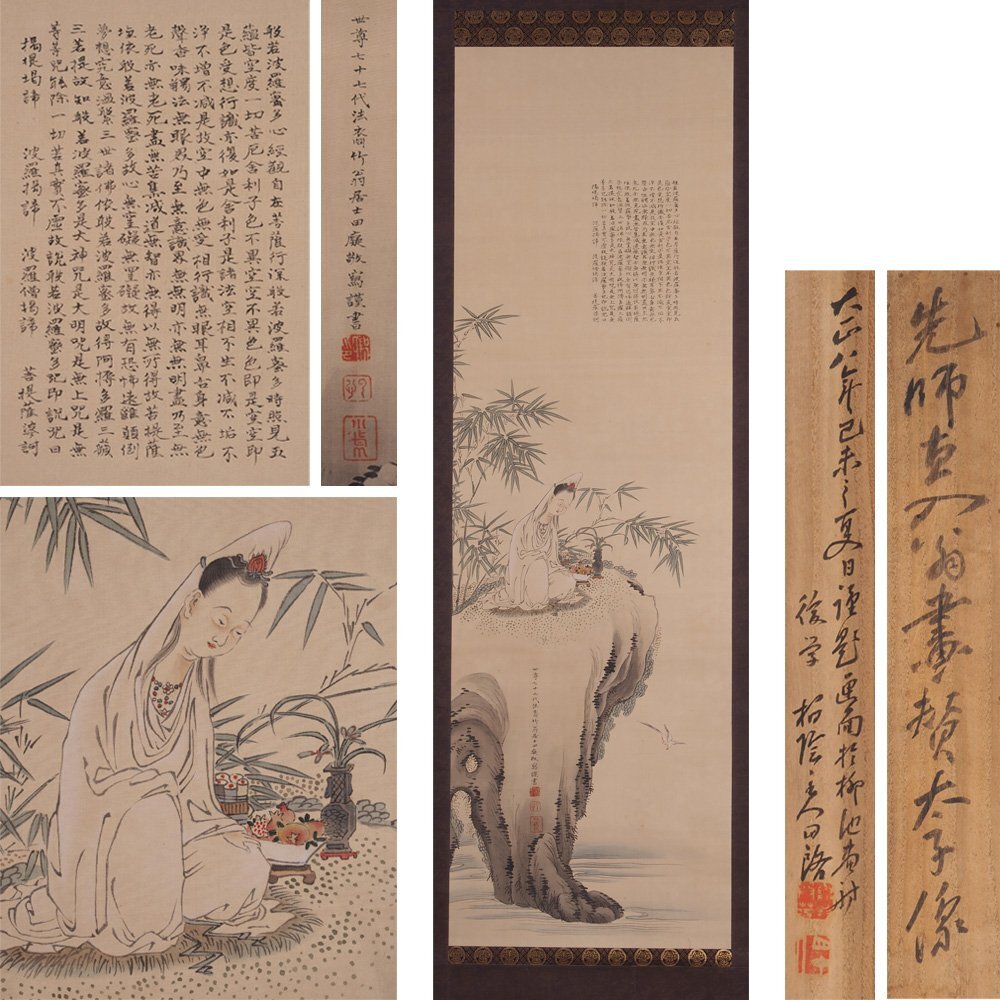 般若波羅蜜多心經觀自在菩薩行深般若波羅蜜多時照見五
蘊皆空度一切苦厄舍利子色不異空空不異色色即是空空即
是色受想行識亦復如是舍利子是諸法空相不生不滅不垢不
淨不增不減是故空中無色無受想行識無眼耳鼻舌身意無色
聲香味觸法無眼界乃至無意識界無無明亦無無明盡乃至無
老死亦無老死盡無苦集滅道無智亦無得以無所得故菩提薩
埵依般若波羅蜜多故心無罣礙無罣礙故無有恐怖遠離顛倒
夢想究竟涅槃三世諸佛依般若波羅蜜多故得阿耨多羅三藐
三菩提故知般若波羅蜜多是大神咒是大明咒是無上咒是無
等等咒能除一切苦真實不虛故說般若波羅蜜多咒即說咒曰
揭諦 波羅揭諦 波羅僧揭諦 菩提薩婆訶
世尊七十七代法裔竹翁居士田 敬寫謹書
先師直入翁畫贊太子像
大正八年己未之夏日謹題 於柳池
後学 柏陰主人田